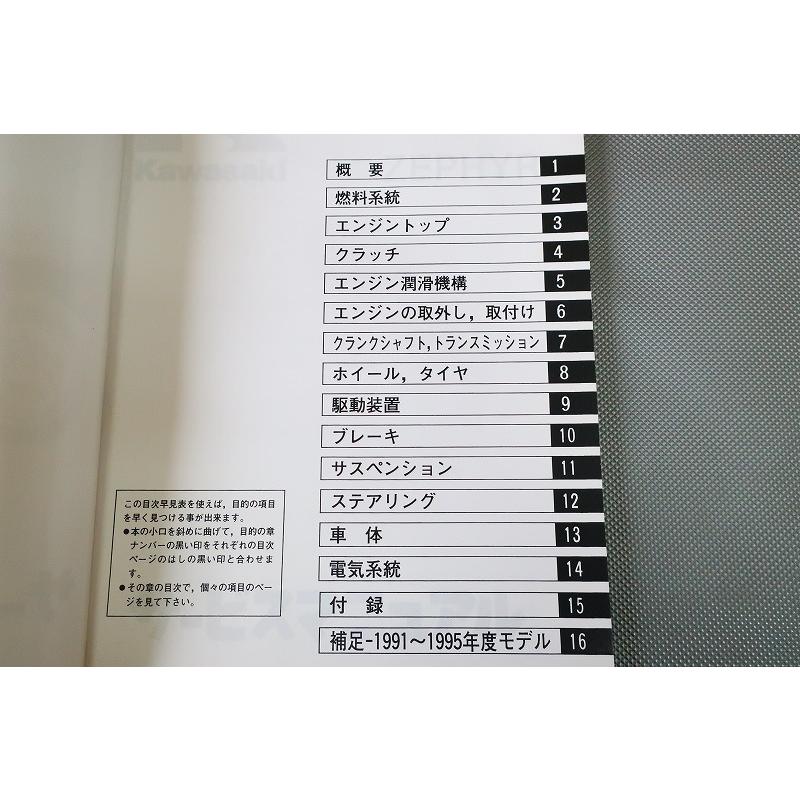 Kawasaki
ZEPHYR
概 要 1
燃料系統 2
エンジントップ 3
クラッチ 4
エンジン潤滑機構 5
エンジンの取外し，取付け 6
クランクシャフト,トランスミッション 7
ホイール，タイヤ 8
駆動装置 9
ブレーキ 10
サスペンション 11
ステアリング 12
車 体 13
電気系統 14
付 録 15
補足-1991～1995年度モデル 16
この目次早見表を使えば，目的の項目
を早く見つける事が出来ます。
●本の小口を斜めに曲げて，目的の章
ナンバーの黒い印をそれぞれの目次
ページのはしの黒い印と合わせま
す。
●その章の目次で，個々の項目のペー
ジを見て下さい。